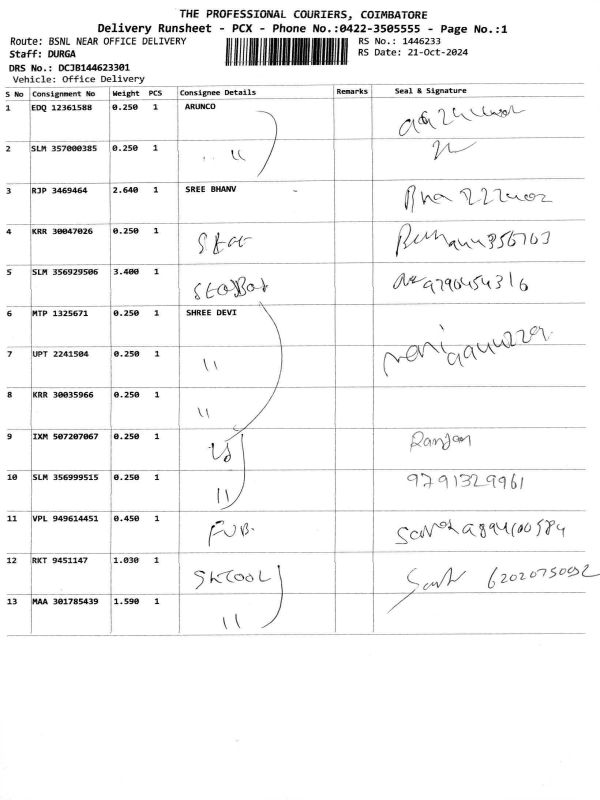 THE PROFESSIONAL COURIERS, COIMBATORE
Delivery Runsheet - PCX - Phone No.:0422-3505555 - Page No.:1
Route: BSNL NEAR OFFICE DELIVERY RS No.: 1446233
Staff: DURGA RS Date: 21-Oct-2024
DRS No.: DCJB144623301
Vehicle: Office Delivery
S No Consignment No Weight PCS Consignee Details Remarks Seal & Signature
1 EDQ 12361588 0.250 1 ARUNCO
2 SLM 357000385 0.250 1 "
3 RJP 3469464 2.640 1 SREE BHANV
4 KRR 30047026 0.250 1
5 SLM 356929506 3.400 1 9790454316
6 MTP 1325671 0.250 1 SHREE DEVI
7 UPT 2241504 0.250 1 "
8 KRR 30035966 0.250 1 "
9 IXM 507207067 0.250 1 Ranjan
10 SLM 356999515 0.250 1 " 9791329961
11 VPL 949614451 0.450 1
12 RKT 9451147 1.030 1
13 MAA 301785439 1.590 1 "